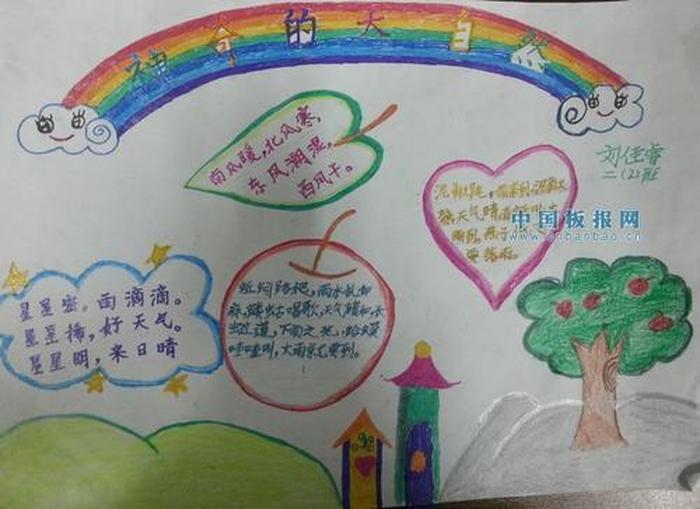 神奇的大自然
南风暖，北风寒，
东风潮湿，
西风干。
刘佳睿
二（2）班
天气晴
中国板报网
www.cnbanbao.cn
星星密，雨滴滴。
星星稀，好天气。
星星明，来日晴
蚯蚓路爬，雨水乱如
麻，蟋蟀唱歌，天气晴和，长
虫过道，下雨之兆，蛤蟆
哇哇叫，大雨就要到。